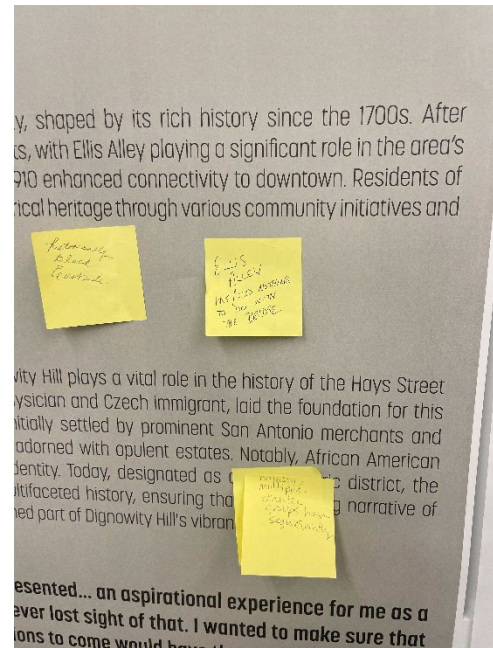 y, shaped by its rich history since the 1700s. After
ts, with Ellis Alley playing a significant role in the area's
910 enhanced connectivity to downtown. Residents of
rical heritage through various community initiatives and
Historically
Black
Eastside
Ellis
Alley
has
nothing
to do with
the bridge
wity Hill plays a vital role in the history of the Hays Street
ysician and Czech immigrant, laid the foundation for this
nitially settled by prominent San Antonio merchants and
adorned with opulent estates. Notably, African American
dentity. Today, designated as district, the
ltifaceted history, ensuring tha g narrative of
ned part of Dignowity Hill's vibran
multiple
groups have
esented... an aspirational experience for me as a
ever lost sight of that. I wanted to make sure that
ions to come would have